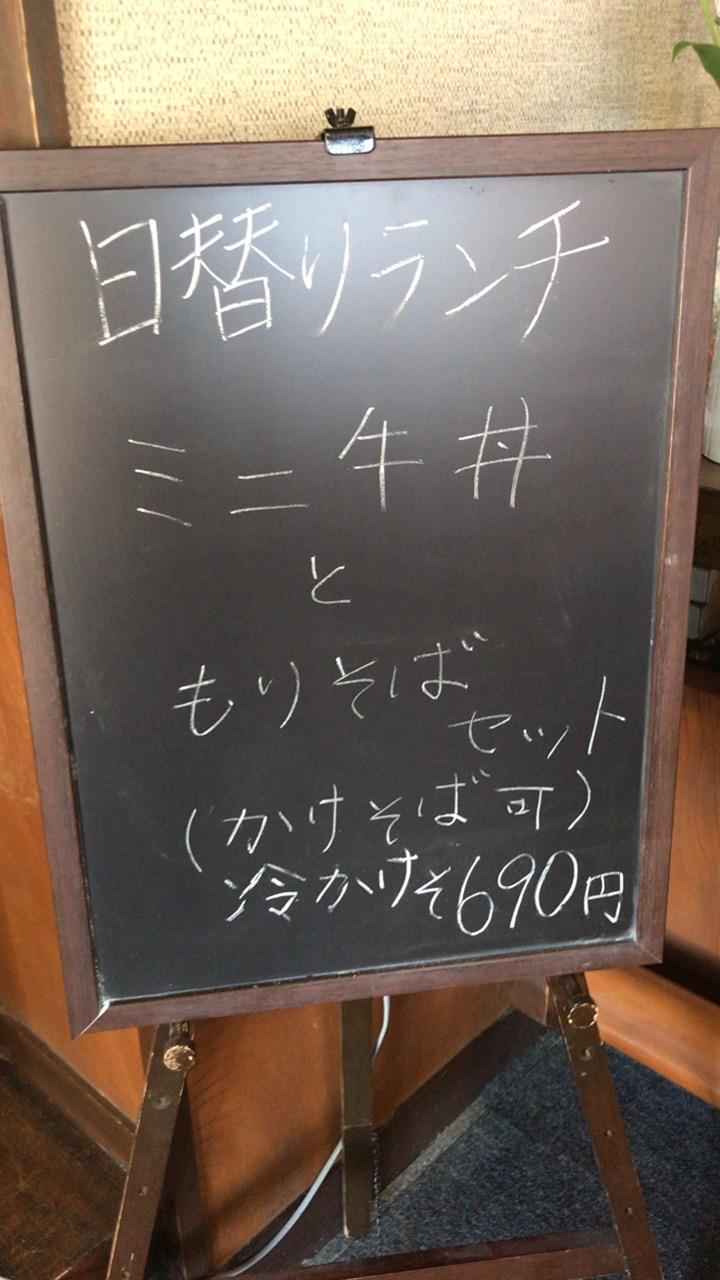 日替りランチ
ミニ牛丼
と
もりそば
セット
(かけそば可)
冷かけそ690円